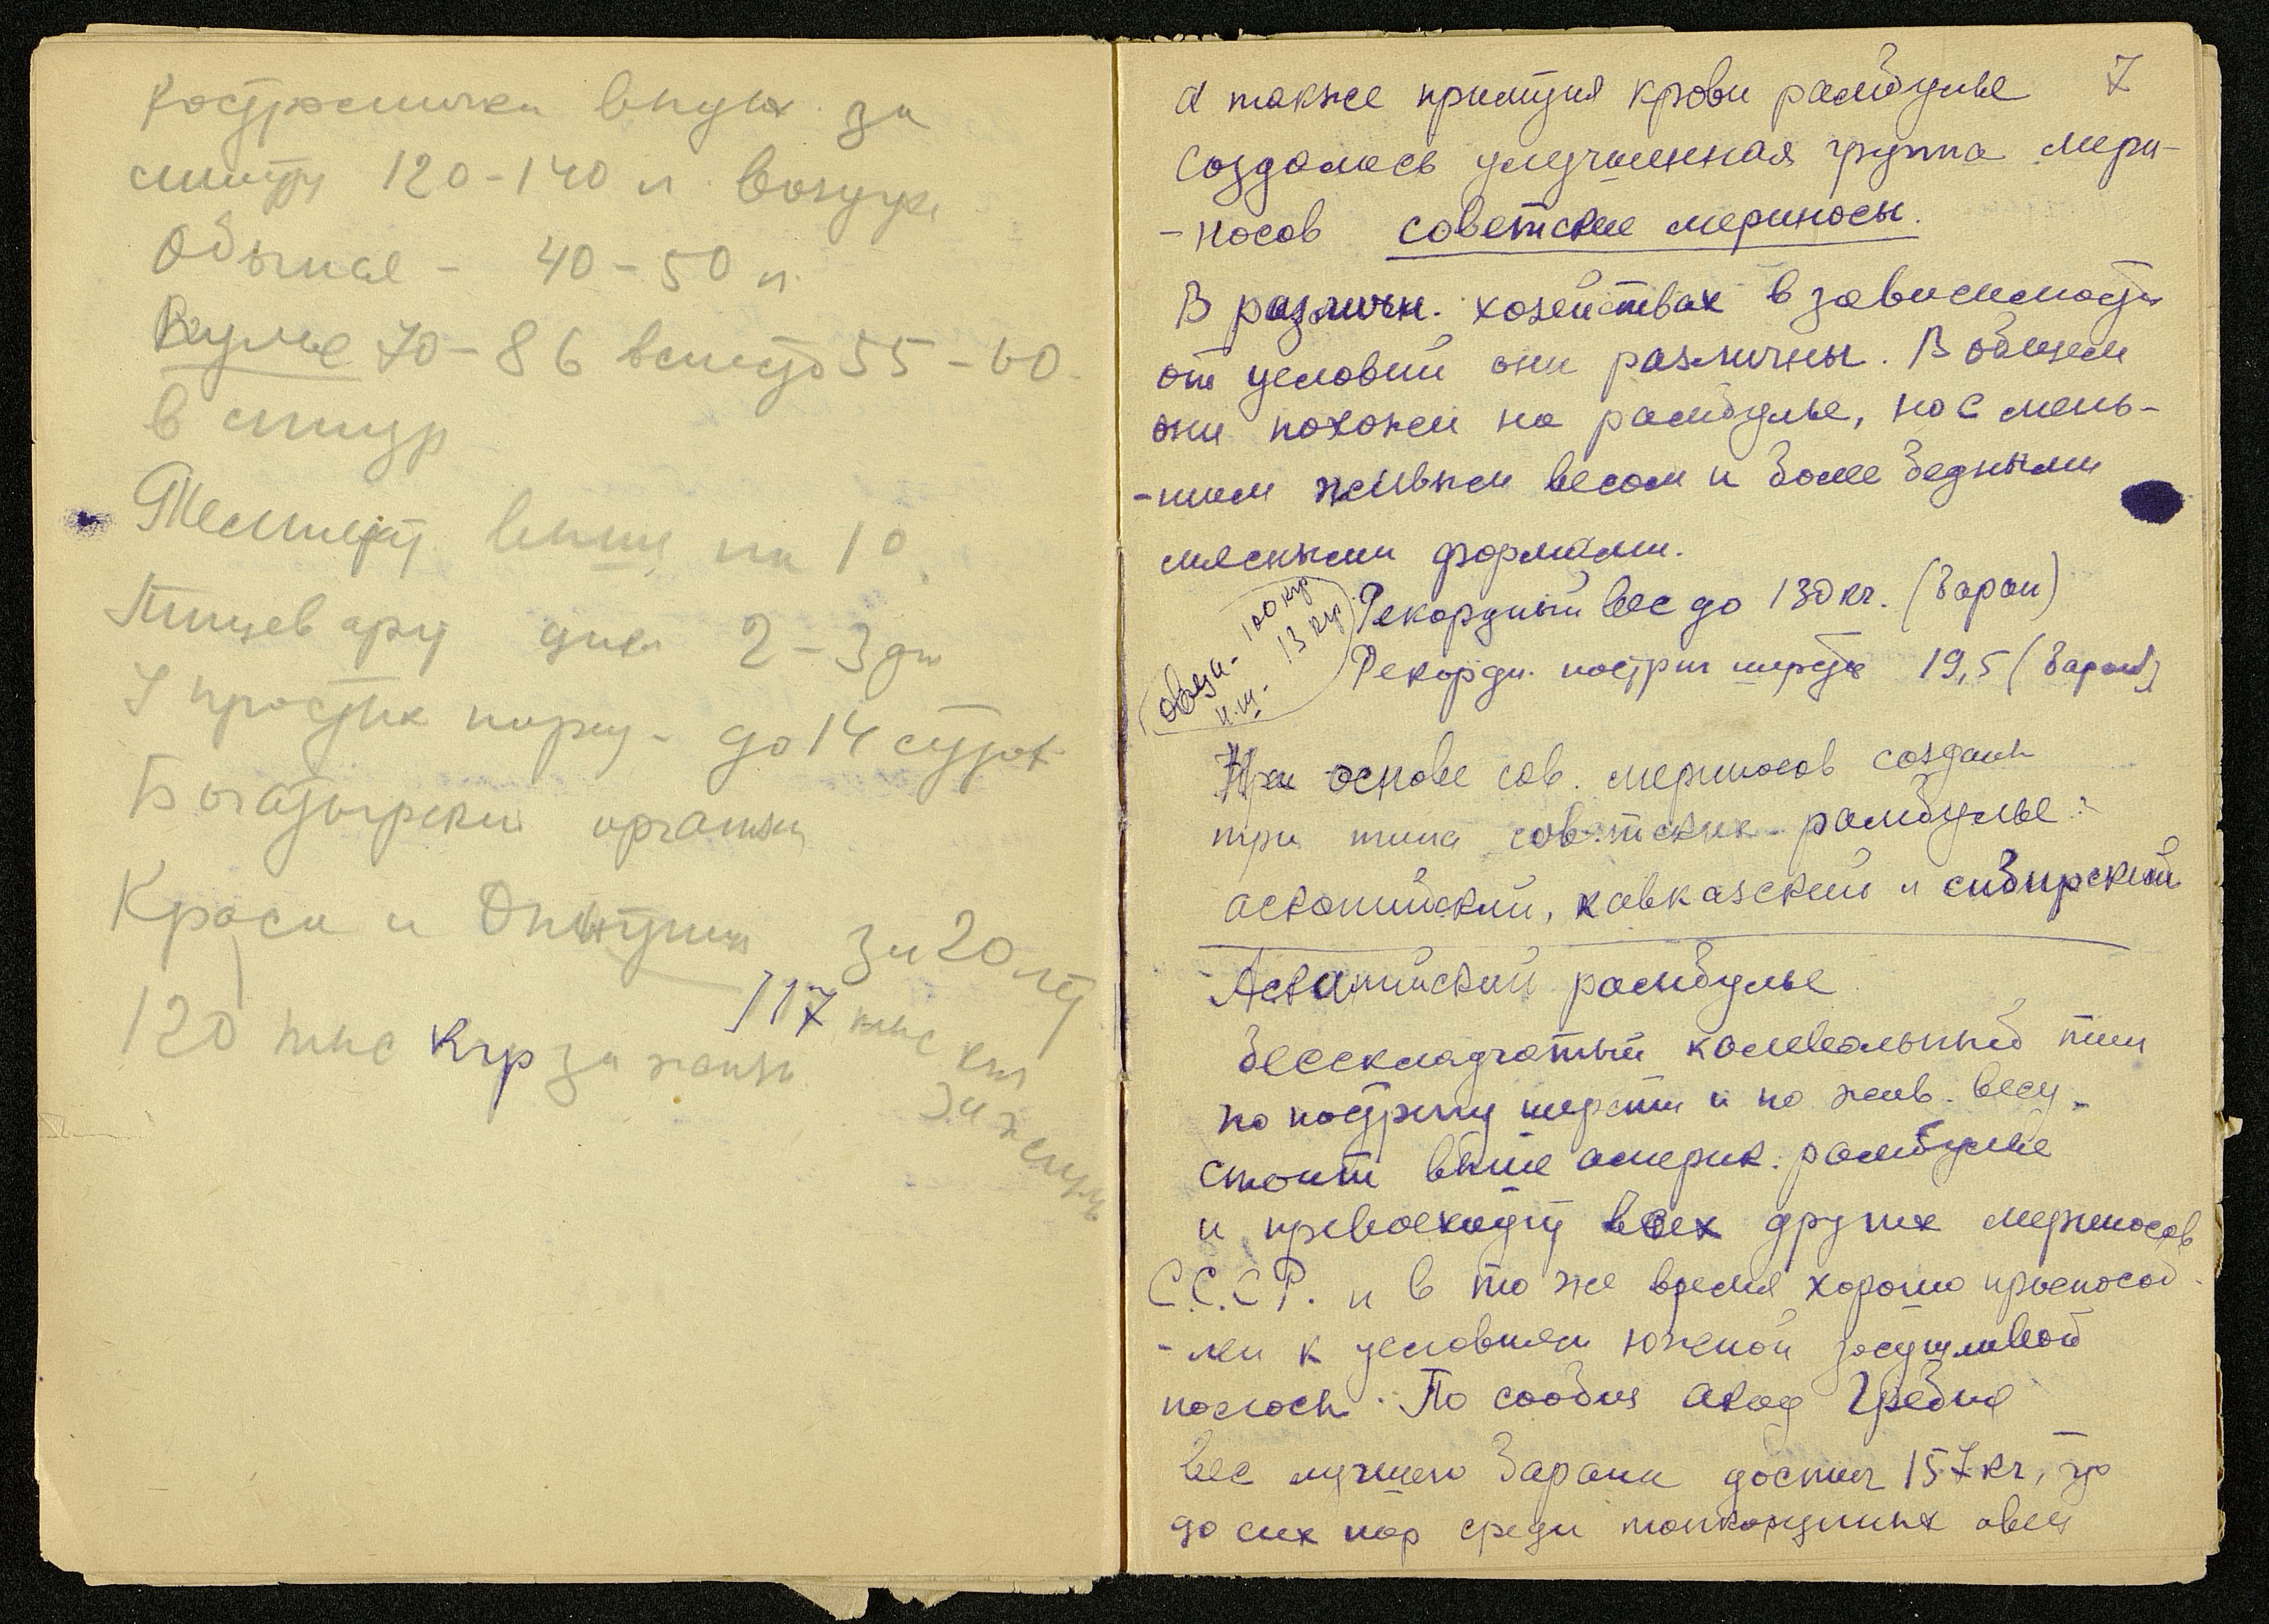 Костромичка вдых. за
минуту 120-140 л воздуха
Обычная - 40-50 л
Пульс 70-86 вместо 55-60
в минут
Температ. выше на 1°.
Пищевару дых 2-3
У простых - до 14 суток
Богатырский организм
Краса и Опытница за 20 лет
117 тыс кгр
120 тыс кгр за жизнь
за жизнь
7
а также прилития крови рамбулье
создалась улучшенная группа мери-
-носов советские мериносы.
В различн. хозяйствах в зависимости
от условий они различны. В общем
они похожи на рамбулье, но с мень-
-шим живым весом и более бедными
мясными формами.
Рекордный вес до 130 кг. (Баран)
овца - 100 кгр
н.ш. - 13 кгр.
Рекордн. настриг шерсти 19,5 (Баран)
На основе сов. мериносов создан
три типа советских рамбулье:
асканийский, кавказский и сибирский
Асканийский рамбулье
бесскладчатый камвольный тип
по настригу шерсти и по жив. весу
стоит выше америк. рамбулье
и превосходит всех других мериносов
С.С.С.Р. и в то же время хорошо приспособ-
-лен к условиям южной засушливой
полосы. По сообщ акад Гребня
вес лучшего Барана достиг 157 кг, что
до сих пор среди тонкорунных овец